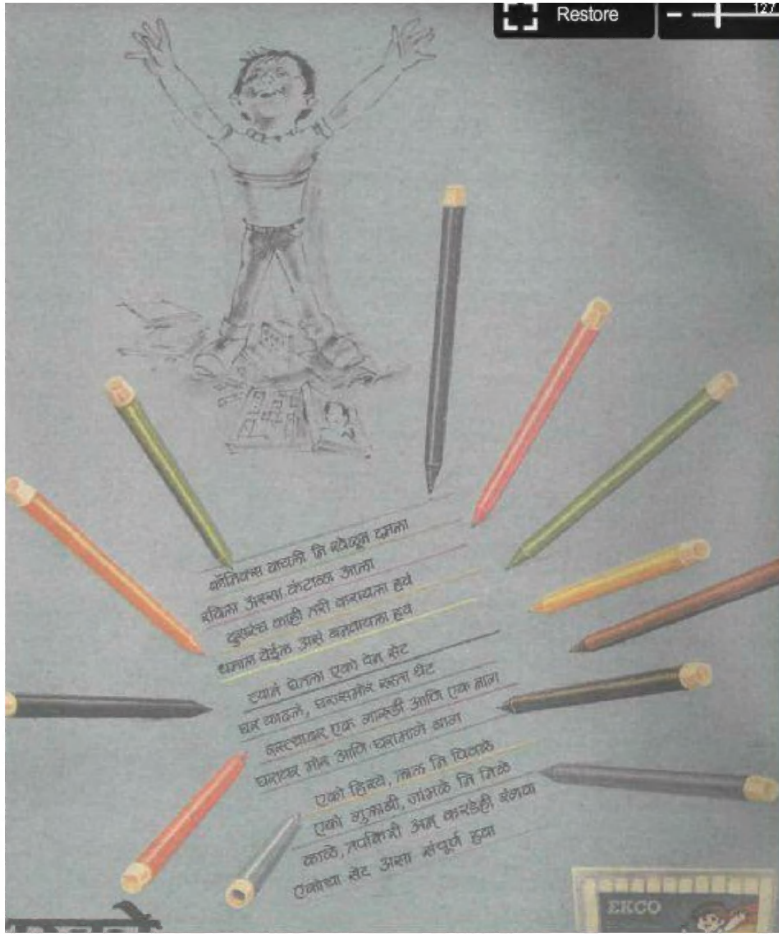 Restore
127
कॉमिक्स वाचली नि खेळून दमला
रविला अस्सा कंटाळा आला
दुसरंच काही तरी करायला हवं
धमाल येईल असं बनवायला हवं
त्यानं घेतला एको पेन सेट
घर काढलं, घरासमोर रस्ता थेट
रस्त्यावर एक गारुडी आणि एक नाग
घरावर मोर आणि घरामागे बाग
एको हिरवे, लाल नि पिवळे
एको गुलाबी, जांभळे नि निळे
काळे, तपकिरी अन् करडेही रंगवा
एकोचा सेट असा संपूर्ण हवा
EKCO